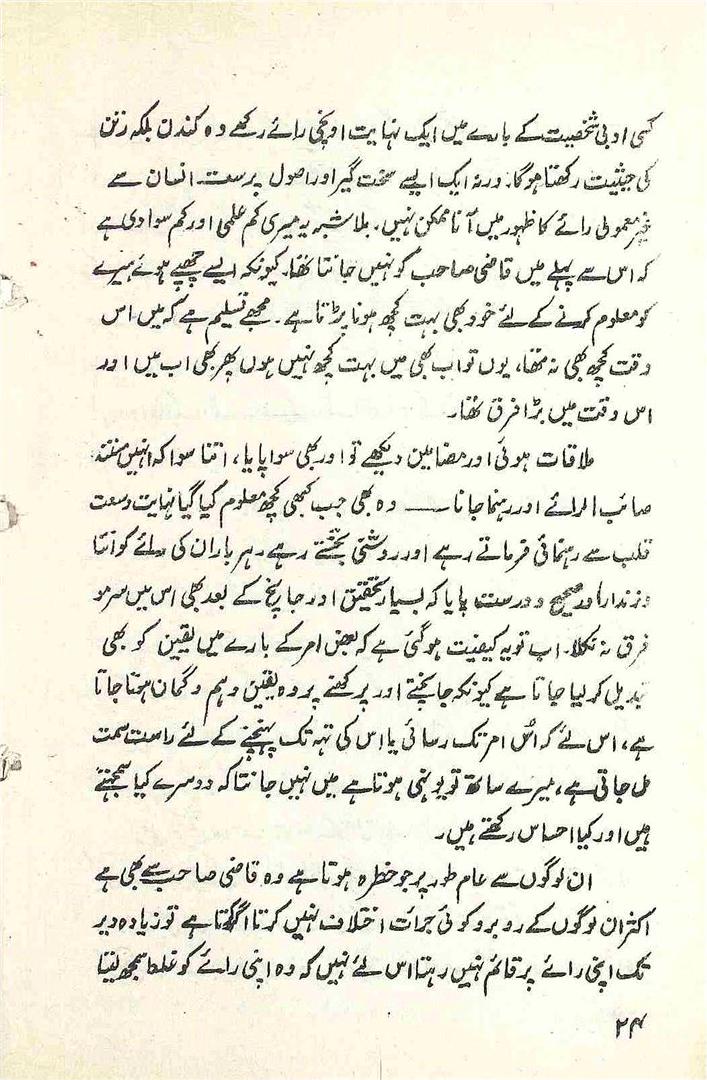 کسی ادبی شخصیت کے بارے میں ایک نہایت اونچی رائے رکھے وہ کندن بلکہ رتن
کی حیثیت رکھتا ہوگا۔ ورنہ ایک ایسے سخت گیر اور اصول پرست انسان سے
غیر معمولی رائے کا ظہور میں آنا ممکن نہیں۔ بلاشبہ یہ میری کم علمی اور کم سوادی ہے
کہ اس سے پہلے میں قاضی صاحب کو نہیں جانتا تھا۔ کیونکہ ایسے چھپے ہوئے ہیرے
کو معلوم کرنے کے لئے خود بھی بہت کچھ ہونا پڑتا ہے۔ مجھے تسلیم ہے کہ میں اس
وقت کچھ بھی نہ تھا، یوں تو اب بھی میں بہت کچھ نہیں ہوں پھر بھی اب میں اور
اس وقت میں بڑا فرق تھا۔
ملاقات ہوئی اور مضامین دیکھے تو اور بھی سوا پایا، اتنا سوا کہ انہیں مستند
صائب الرائے اور رہنما جانا ـــ وہ بھی جب کبھی کچھ معلوم کیا گیا نہایت وسعت
قلب سے رہنمائی فرماتے رہے اور روشنی بخشتے رہے، ہر بار ان کی رائے کو اتنا
وزندار اور صحیح و درست پایا کہ بسیار تحقیق اور جانچ کے بعد بھی اس میں سرمو
فرق نہ نکلا۔ اب تو یہ کیفیت ہوگئی ہے کہ بعض امر کے بارے میں یقین کو بھی
تبدیل کر لیا جاتا ہے کیونکہ جانچنے اور پرکھنے پر وہ یقین وہم و گمان ہوتا جاتا
ہے، اس لئے کہ اُس امر تک رسائی یا اس کی تہہ تک پہنچنے کے لئے راست سمت
مل جاتی ہے، میرے ساتھ تو یونہی ہوتا ہے میں نہیں جانتا کہ دوسرے کیا سمجھتے
ہیں اور کیا احساس رکھتے ہیں۔
ان لوگوں سے عام طور پر جو خطرہ ہوتا ہے وہ قاضی صاحب سے بھی ہے
اکثر ان لوگوں کے روبرو کوئی جرات اختلاف نہیں کرتا اگر کرتا ہے تو زیادہ دیر
تک اپنی رائے پر قائم نہیں رہتا اس لئے نہیں کہ وہ اپنی رائے کو غلط سمجھ لیتا
۲۴